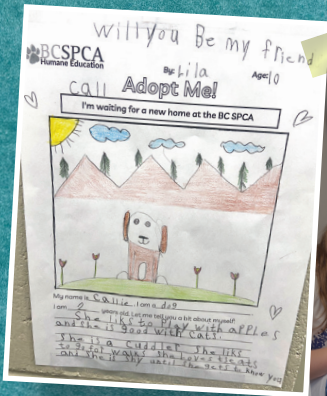 Will you Be my friend
BCSPCA
Humane Education
By: Lila
Age: 10
Call
Adopt Me!
I'm waiting for a new home at the BC SPCA
My name is Callie I am a dog
I am years old. Let me tell you a bit about myself!
She like to Play with apples
and she is good with cats.
She is a cuddler She liks
to go for walks she Loves treats
and she is shy until she gets to know you